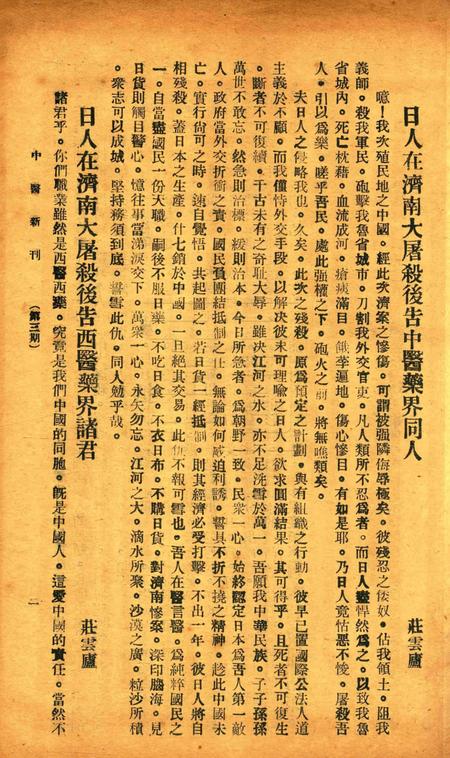 日人在濟南大屠殺後告中醫藥界同人
莊雲廬
噫！我次殖民地之中國。經此次濟案之慘傷。可謂被强隣侮辱極矣。彼殘忍之倭奴。佔我領土。阻我
義師。殺我軍民。砲擊我魯省城市。刀割我外交官吏。凡人類所不忍爲者。而日人盡悍然爲之。以致我魯
省城內。死亡枕藉。血流成河。瘡痍滿目。餓莩遍地。傷心慘目。有如是耶。乃日人竟怙惡不悛。屠殺吾
人。引以爲樂。嗟乎吾民。處此强權之下。砲火之前。將無噍類矣。
夫日人之侵略我也。久矣。此次之殘殺。原爲預定之計劃。與有組織之行動。彼早已置國際公法人道
主義於不顧。而我僅恃外交手段。以解決彼未可理喩之日人。欲求圓滿結果。其可得乎。且死者不可復生
。斷者不可復續。千古未有之奇耻大辱。雖决江河之水。亦不足洗雪於萬一。吾願我中華民族。子子孫孫
萬世不敢忘。然急則治標。緩則治本。今日所急者。爲朝野一致。民衆一心。始終認定日本爲吾人第一敵
人。政府當外交折衝之責。國民負團結抵制之仕。無論如何威迫利誘。誓具不折不撓之精神。趁此中國未
亡。實行尙可之時。速自覺悟。共起圖之。若日貨一經抵制。則其經濟必受打擊。不出一年。彼日人將自
相殘殺。蓋日本之生產。什七銷於中國。一旦絕其交易。此仇不報可雪也。吾人在醫言醫。爲純粹國民之
一。自當盡國民一份天職。嗣後不服日藥。不吃日食。不衣日布。不購日貨。對濟南慘案。深印腦海。見
日貨則觸目警心。憶往事當涕淚交下。萬衆一心。永矢勿忘。江河之大。滴水所聚。沙漠之廣。粒沙所積
。衆志可以成城。堅持務須到底。誓雪此仇。同人勉乎哉。
日人在濟南大屠殺後告西醫藥界諸君
莊雲廬
諸君乎。你們職業雖然是西醫西藥。究竟是我們中國的同胞。旣是中國人。這愛中國的責任。當然不
中醫新刊
（第三期）
一